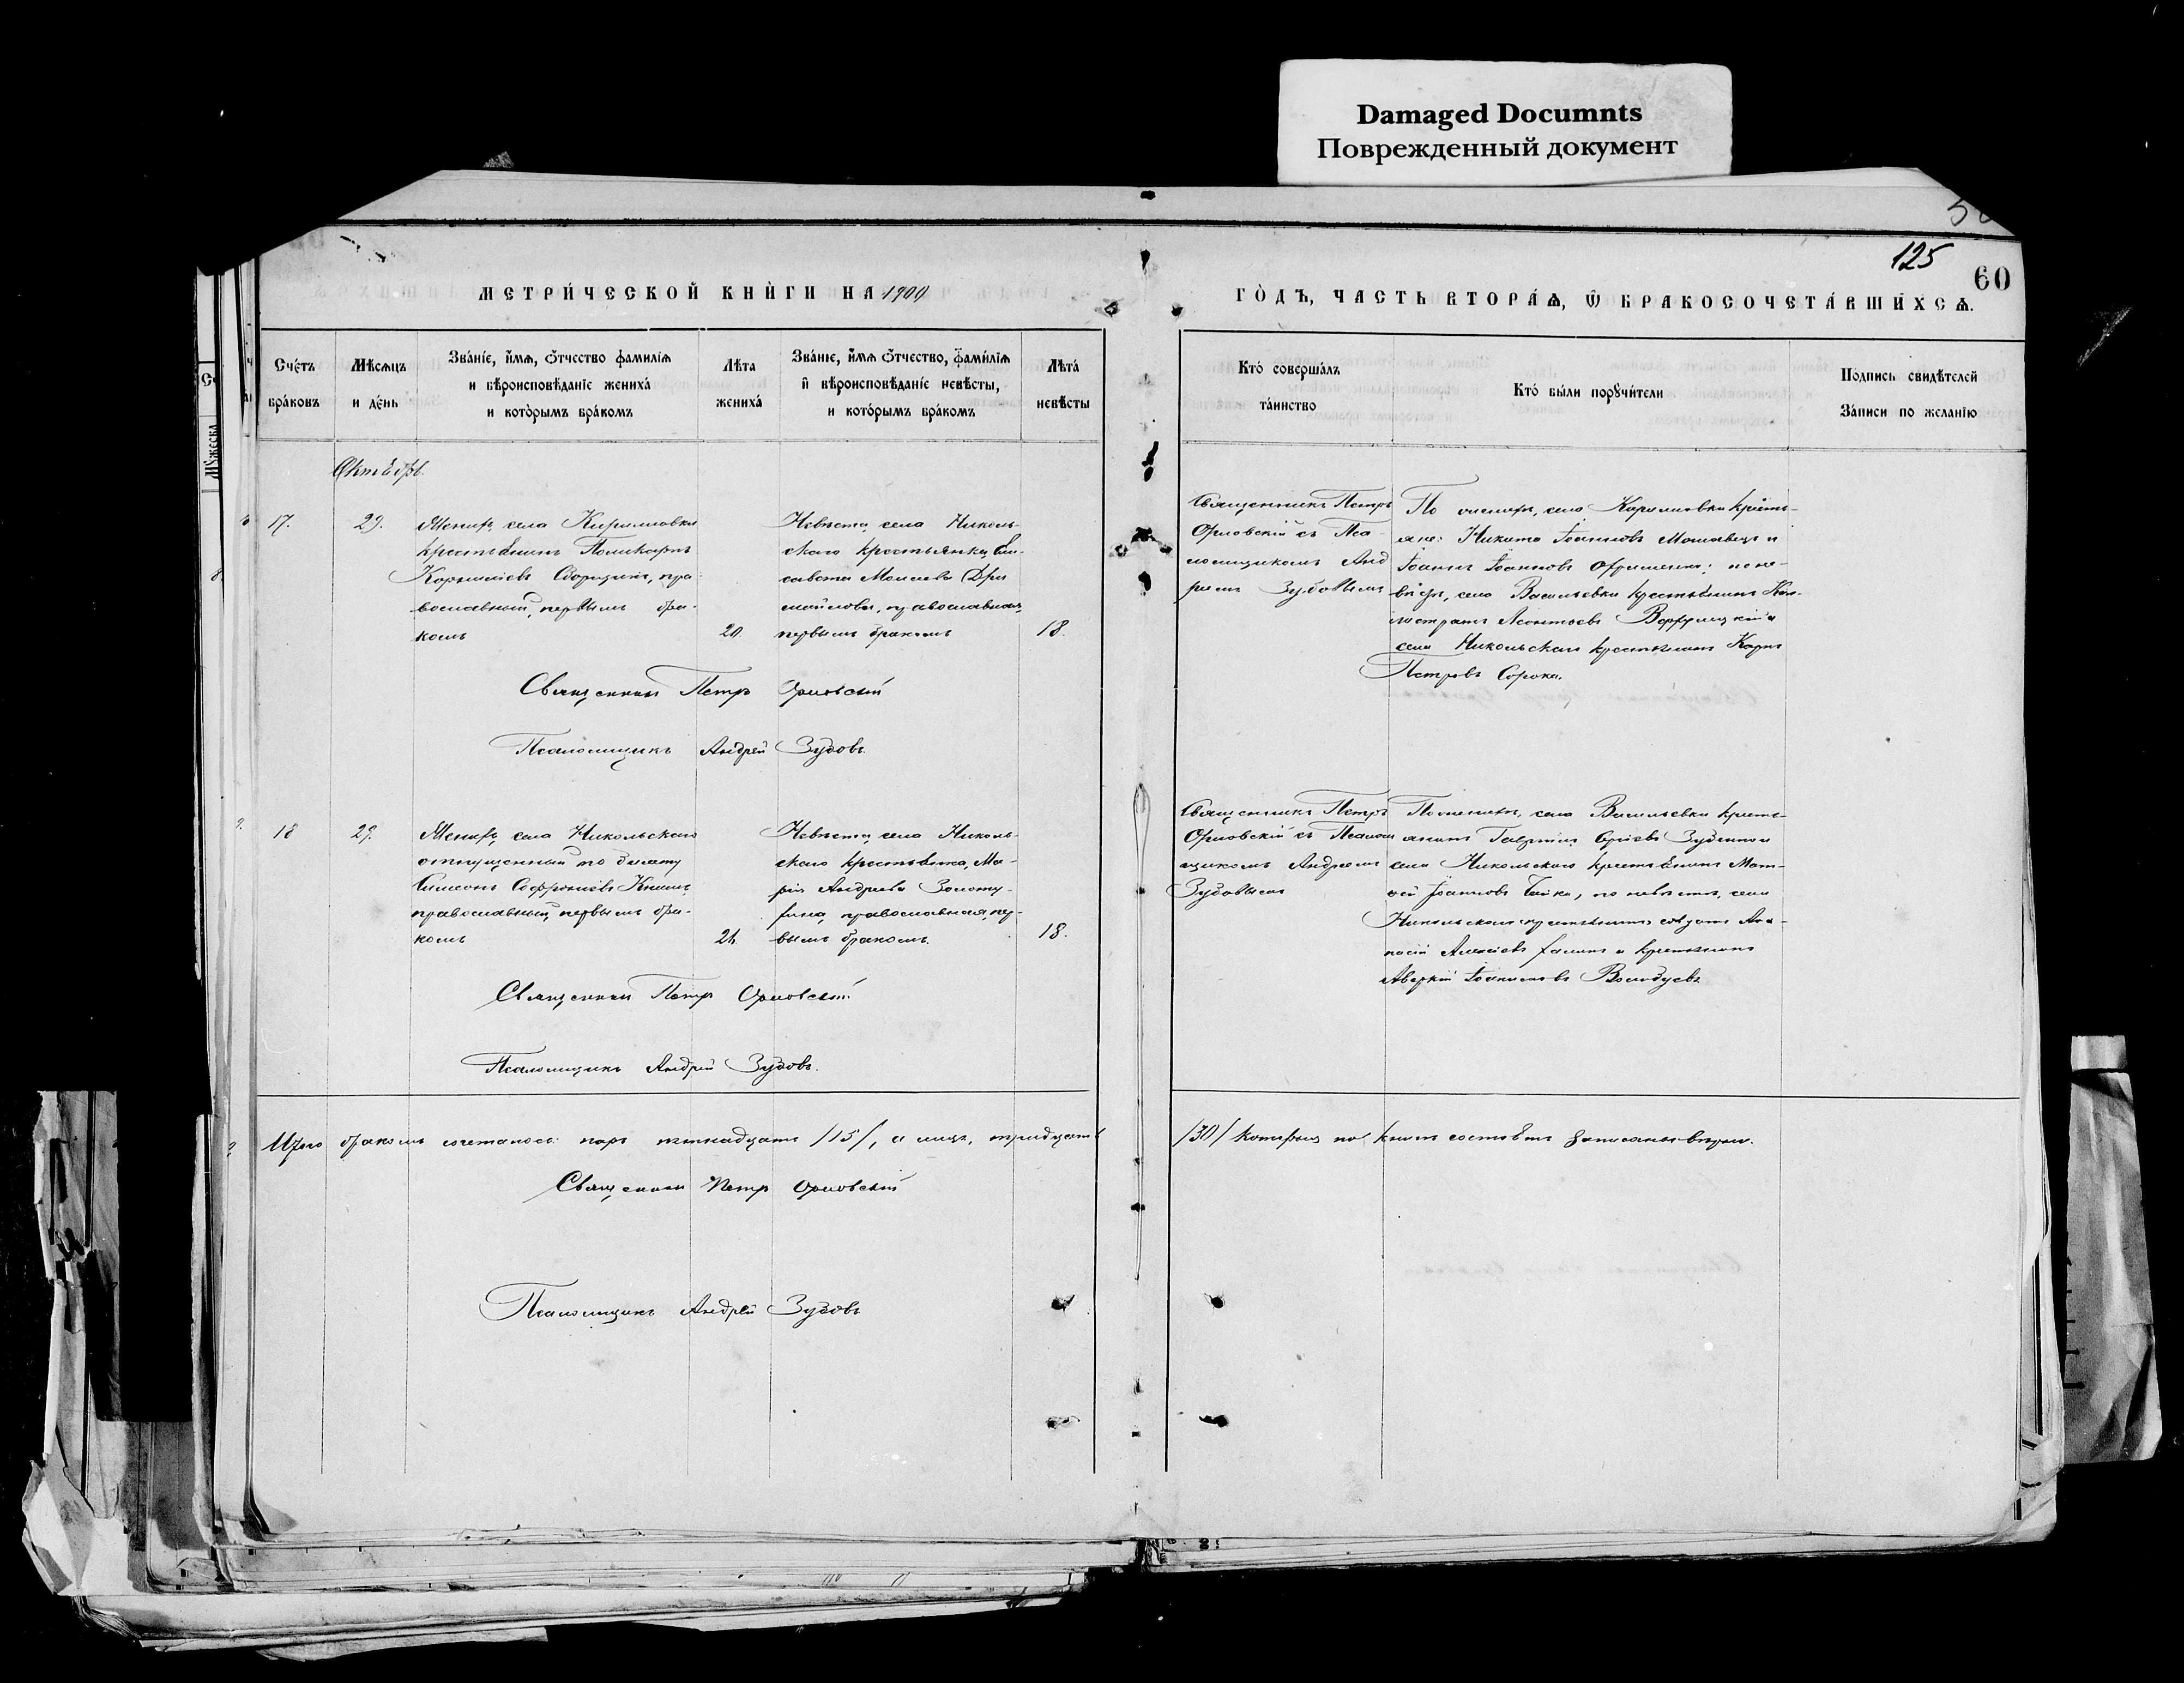 Damaged Documnts
Поврежденный документ
125
60
МЕТРИ́ЧЕСКОЙ КНИ́ГИ НА 1904
ГО́ДЪ, ЧАСТЬ ВТОРА́Ѧ, Ѿ БРАКОСОЧЕТА́ВШИХСѦ.
Сче́тъ бра́ковъ
Мѣсѧцъ и де́нь
Зва́нїе, и҆́мѧ, ѻ҆́тчество фамилїѧ
и вѣроисповѣданїе жениха́
и кото́рымъ бра́комъ
Лѣта жениха́
Зва́нїе, и҆́мѧ ѻ҆́тчество, фами́лїѧ
и҆ вѣроисповѣданїе невѣсты,
и кото́рымъ бра́комъ
Лѣта́ невѣсты
Кто́ соверша́лъ
та́инство
Кто́ бы́ли порꙋчи́тели
Подпись свидѣтелей
За́писи по желанїю
Октябрь.
17.
29.
Женихъ, села
крестьянинъ Поликарпъ
Корнилиевъ пра-
вославный, первымъ бра-
комъ
20.
Невѣста, села Николь-
скаго крестьянка, Ели-
савета Моисеева
православная,
первымъ бракомъ
18.
Священникъ Петръ
Орловскій съ Пса-
ломщикомъ Анд
реемъ Зубовымъ
По женихѣ, села кресть-
яне: Никита Іоанновъ и
Іоаннъ Іоанновъ по не-
вѣстѣ, села Васильевки крестьянинъ Кал-
листратъ Леонтьевъ и
села Никольскаго крестьянинъ Карпъ
Петровъ Сорока.
Священникъ Петръ Орловскій
Псаломщикъ Андрей Зубовъ.
18
29.
Женихъ, села Никольскаго
отпущенный по билету
Симеонъ Софроніевъ
православный, первымъ бра-
комъ
Невѣста, села Николь-
скаго крестьянка, Ма-
рія Андреева
православная, пер-
вымъ бракомъ.
18.
Священникъ Петръ
Орловскій съ Псалом
щикомъ Андреемъ
Зубовымъ
По женихѣ, села Васильевки кресть-
янинъ Гавріилъ и
села Никольскаго крестьянинъ Мат-
ѳей Іоанновъ по невѣстѣ, села
Никольскаго солдатъ Аѳа-
насій и крестьянинъ
Аверкій
Священникъ Петръ Орловскій.
Псаломщикъ Андрей Зубовъ.
Итого бракомъ сочеталось: паръ пятнадцать /15/, а лицъ, тридцать
/30/ которыя по книгѣ записаны вѣрно.
Священникъ Петръ Орловскій
Псаломщикъ Андрей Зубовъ